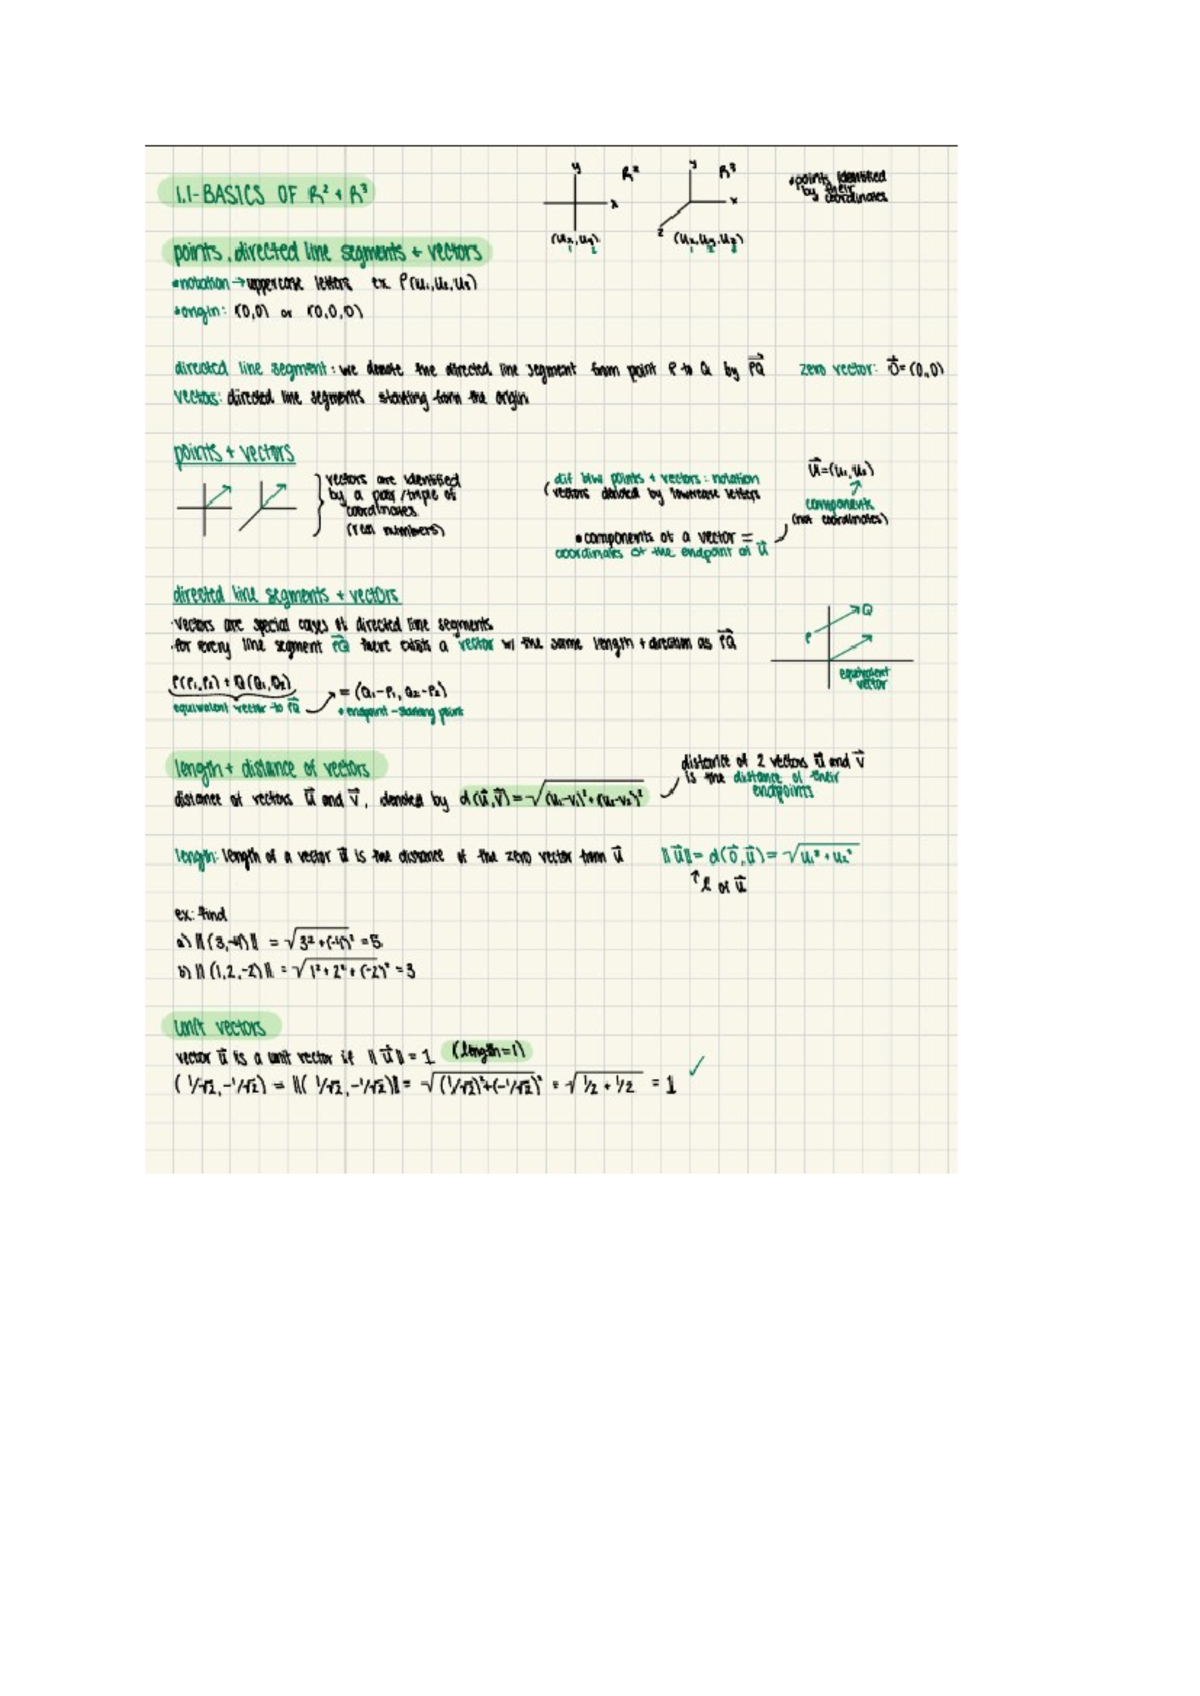 1.1-BASICS OF R² + R³
y R² y R³ •points identified
by their
coordinates
x x
z
(ux,uy) (ux,uy,uz)
1 2 1 2 3
points, directed line segments + vectors
•notation→uppercase letters ex P(u₁,u₂,u₃)
•origin: (0,0) or (0,0,0)
directed line segment: we denote the directed line segment from point P to Q by PQ⃗ zero vector: 0⃗=(0,0)
vectors: directed line segments starting from the origin
points + vectors
vectors are identified
by a pair/triple of
coordinates
(real numbers)
dif btw points + vectors: notation
(vectors denoted by lowercase letters
u⃗=(u₁,u₂)
components
(not coordinates)
•components of a vector =
coordinates of the endpoint of u⃗
directed line segments + vectors
·vectors are special cases of directed line segments
·for every line segment PQ⃗ there exists a vector w/ the same length + direction as PQ⃗
P Q
equivalent
vector
P(P₁,P₂) + Q(Q₁,Q₂)
equivalent vector to PQ⃗
= (Q₁-P₁, Q₂-P₂)
•endpoint - starting point
length + distance of vectors
distance of 2 vectors u⃗ and v⃗
is the distance of their
endpoints
distance of vectors u⃗ and v⃗, denoted by d(u⃗,v⃗)=√(u₁-v₁)²+(u₂-v₂)²
length: length of a vector u⃗ is the distance of the zero vector from u⃗ ||u⃗||= d(0⃗,u⃗)= √u₁²+u₂²
↑ℓ of u⃗
ex: find
a) ||(3,-4)|| = √3²+(-4)² =5
b) ||(1,2,-2)|| = √1²+2²+(-2)² =3
unit vectors
vector u⃗ is a unit vector if ||u⃗||=1 (length=1)
(1/√2,-1/√2) → ||(1/√2,-1/√2)||= √(1/√2)²+(-1/√2)² = √1/2+1/2 =1 ✓